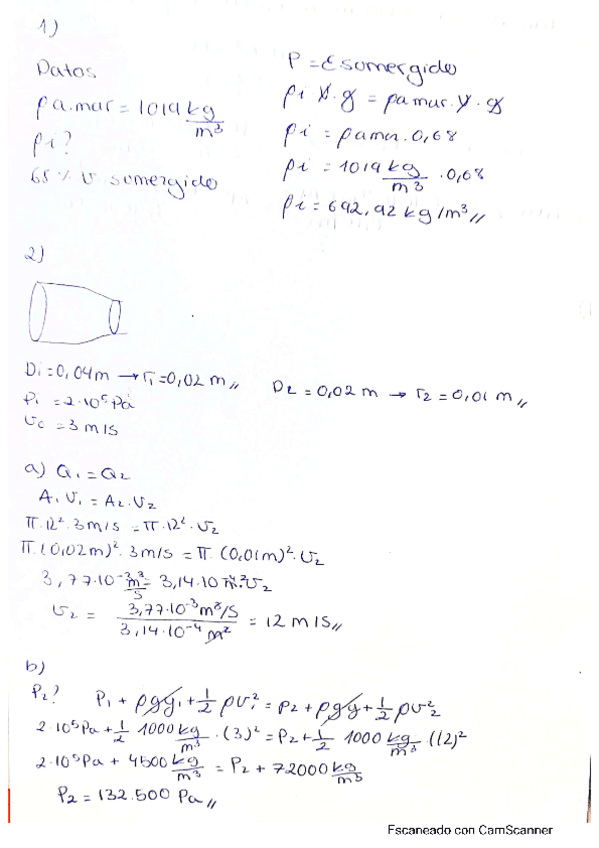 1)
Datos
ρa.mar = 1019 kg/m³
ρi?
68 % v sumergido
P = E sumergido
ρi · V · g = ρamar · V · g
ρi = ρamar · 0,68
ρi = 1019 kg/m³ · 0,68
ρi = 692,92 kg/m³ //
2)
Di = 0,04 m → r1 = 0,02 m //
D2 = 0,02 m → r2 = 0,01 m //
Pi = 2·10⁵ Pa
vc = 3 m/s
a) Q1 = Q2
A1 · v1 = A2 · v2
π · r1² · 3 m/s = π · r2² · v2
π · (0,02 m)² · 3 m/s = π · (0,01 m)² · v2
3,77·10⁻³ m³/s = 3,14·10⁻⁴ m² · v2
v2 = 3,77·10⁻³ m³/s / 3,14·10⁻⁴ m² = 12 m/s //
b)
P2? P1 + ρgy1 + 1/2 ρv1² = P2 + ρgy + 1/2 ρv2²
2·10⁵ Pa + 1/2 1000 kg/m³ · (3)² = P2 + 1/2 1000 kg/m³ (12)²
2·10⁵ Pa + 4500 kg/m³ = P2 + 72000 kg/m³
P2 = 132.500 Pa //
Escaneado con CamScanner